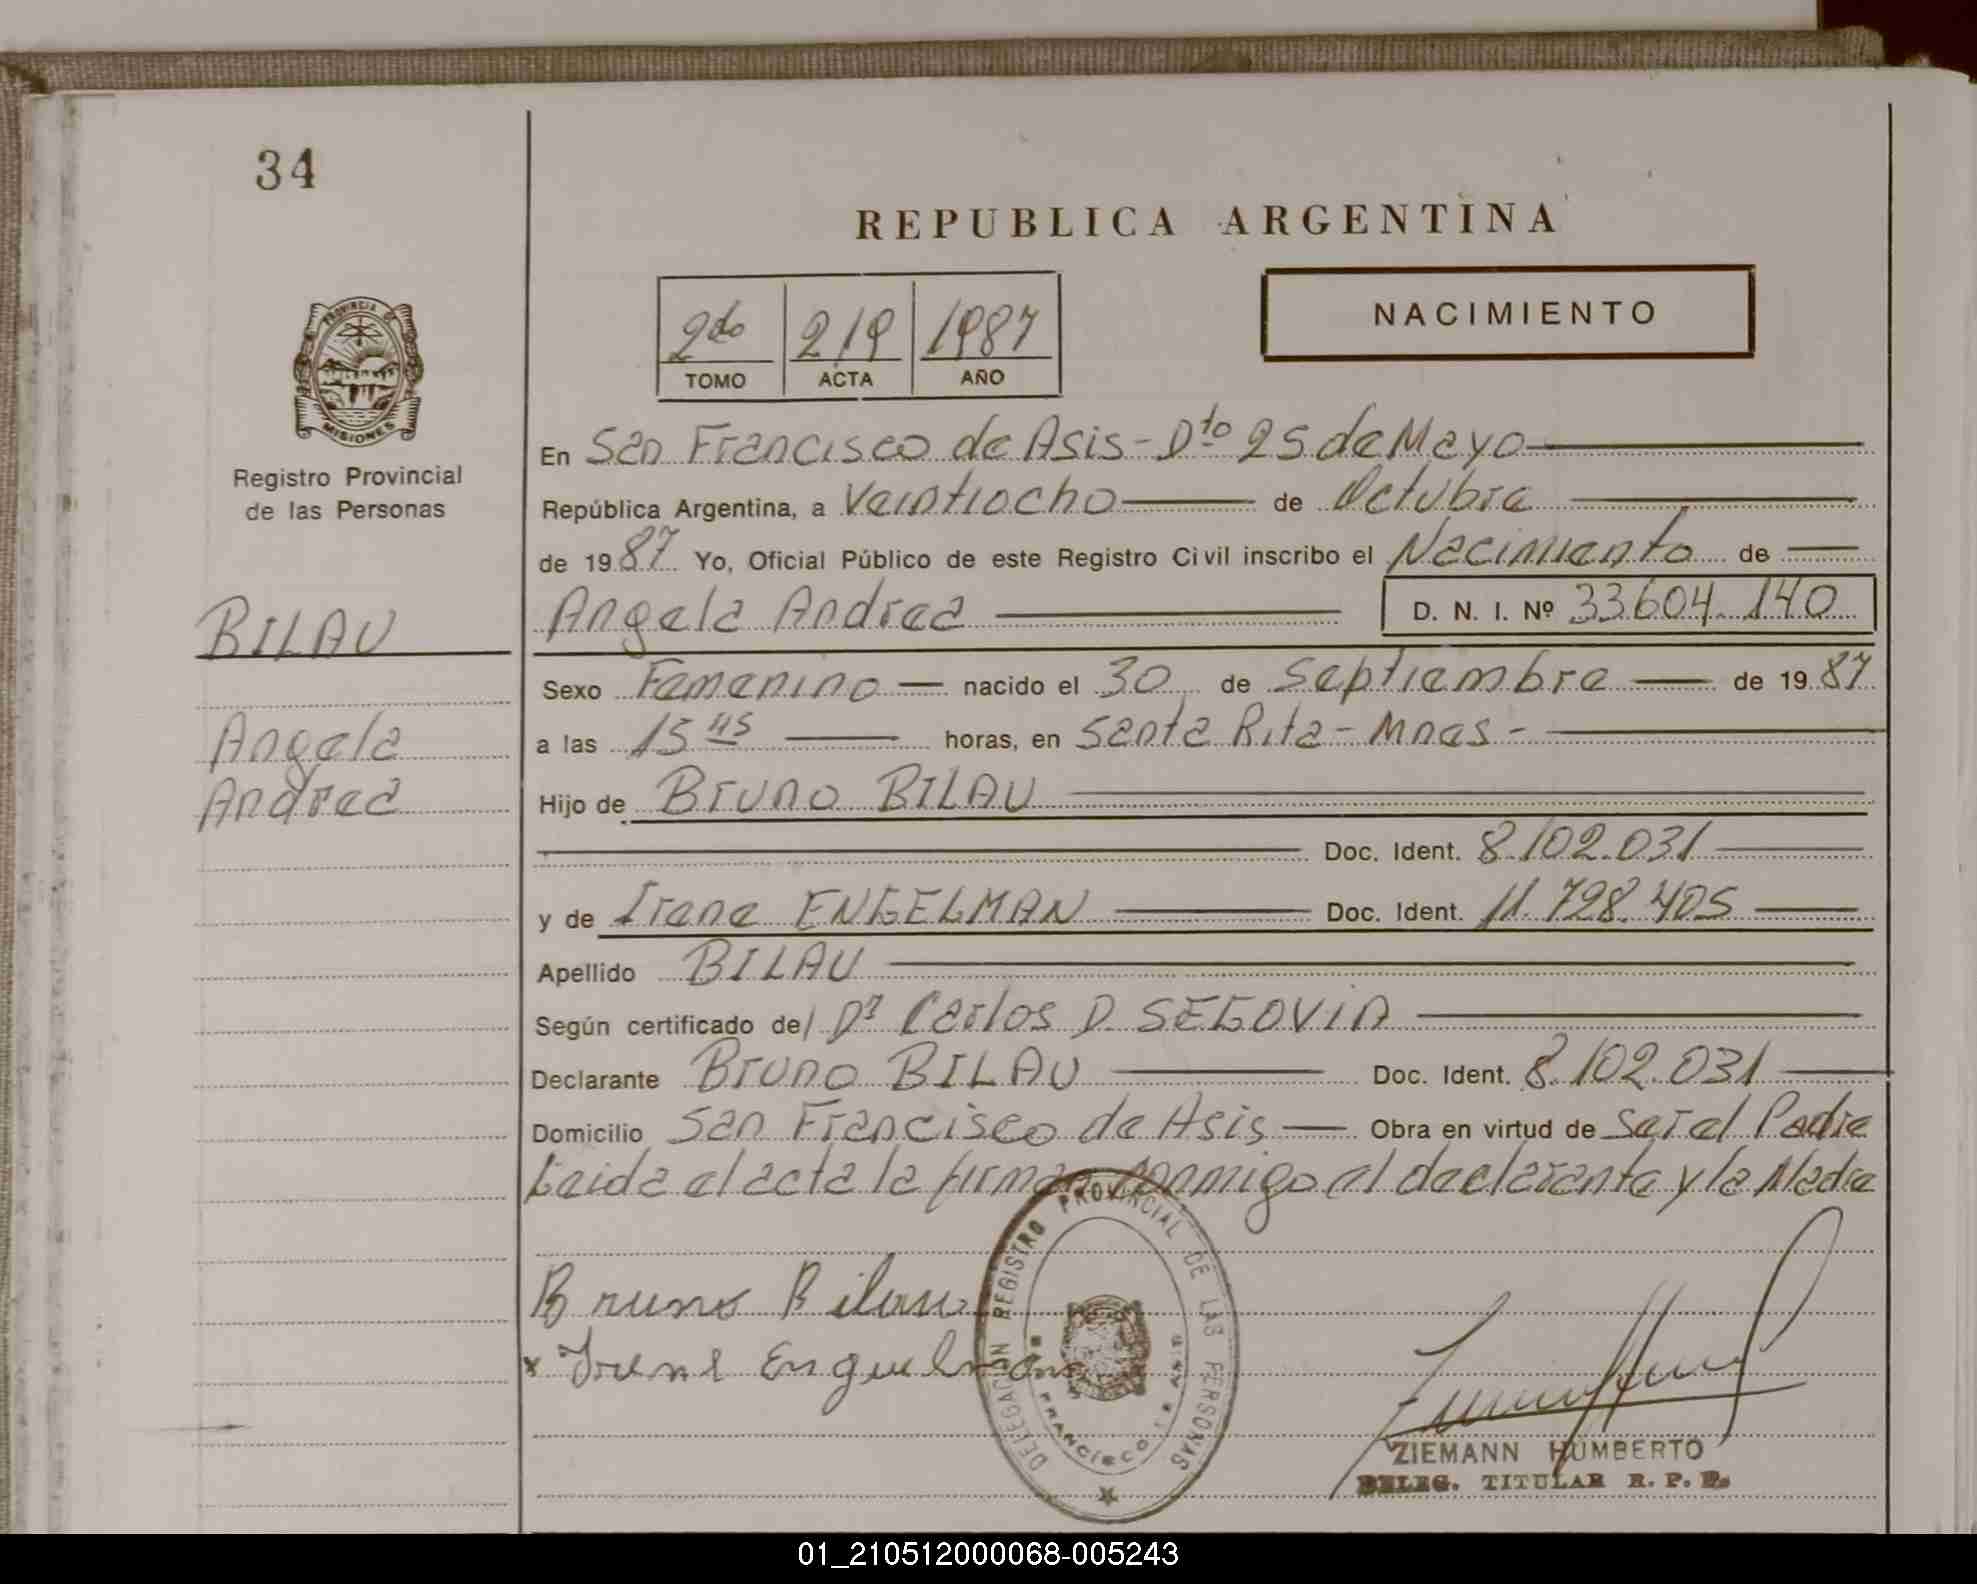 34
REPUBLICA ARGENTINA
2do 219 1987
TOMO ACTA AÑO
NACIMIENTO
PROVINCIA DE
MISIONES
Registro Provincial
de las Personas
En San Francisco de Asis - Dto 25 de Mayo
República Argentina, a Veintiocho de Octubre
de 1987 Yo, Oficial Público de este Registro Civil inscribo el Nacimiento de
BILAU
Angela Andrea D. N. I. Nº 33.604.140
Sexo Femenino nacido el 30 de Septiembre de 1987
Angela
a las 15 45 horas, en Santa Rita - Mnes -
Andrea
Hijo de Bruno BILAU
Doc. Ident. 8.102.031
y de Irene ENGELMAN Doc. Ident. 11.728.405
Apellido BILAU
Según certificado del Dr Carlos D. SEGOVIA
Declarante Bruno BILAU Doc. Ident. 8.102.031
Domicilio San Francisco de Asis Obra en virtud de ser el Padre
Leida el acta la firman conmigo el declarante y la Madre
DELEGACION REGISTRO PROVINCIAL DE LAS PERSONAS
FRANCISCO
Bruno Bilau
x Irene Enguelman
ZIEMANN HUMBERTO
DELEG. TITULAR R. P. P.
01_210512000068-005243